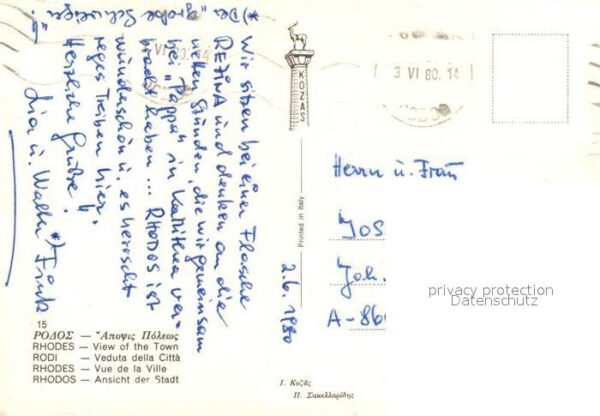 *) Der „große Schweiger".
Wir sitzen bei einer Flasche
RETINA und denken an die
netten Stunden, die wir gemeinsam
bei „Pappas" in Kallithea ver-
bracht haben ... RHODOS ist
wunderschön u. es herrscht
reges Treiben hier!
Herzliche Grüße!
Lia u. Walter *) Fink
2.6.1980
15
ΡΟΔΟΣ — Ἄποψις Πόλεως
RHODES — View of the Town
RODI — Veduta della Città
RHODES — Vue de la Ville
RHODOS — Ansicht der Stadt
KOZAS
Printed in Italy
Ι. Κοζᾶς
Π. Σακελλαρίδης
VI 80. 14
3 VI 80. 14
Herrn u. Frau
Jos
Joh.
A-860
privacy protection
Datenschutz